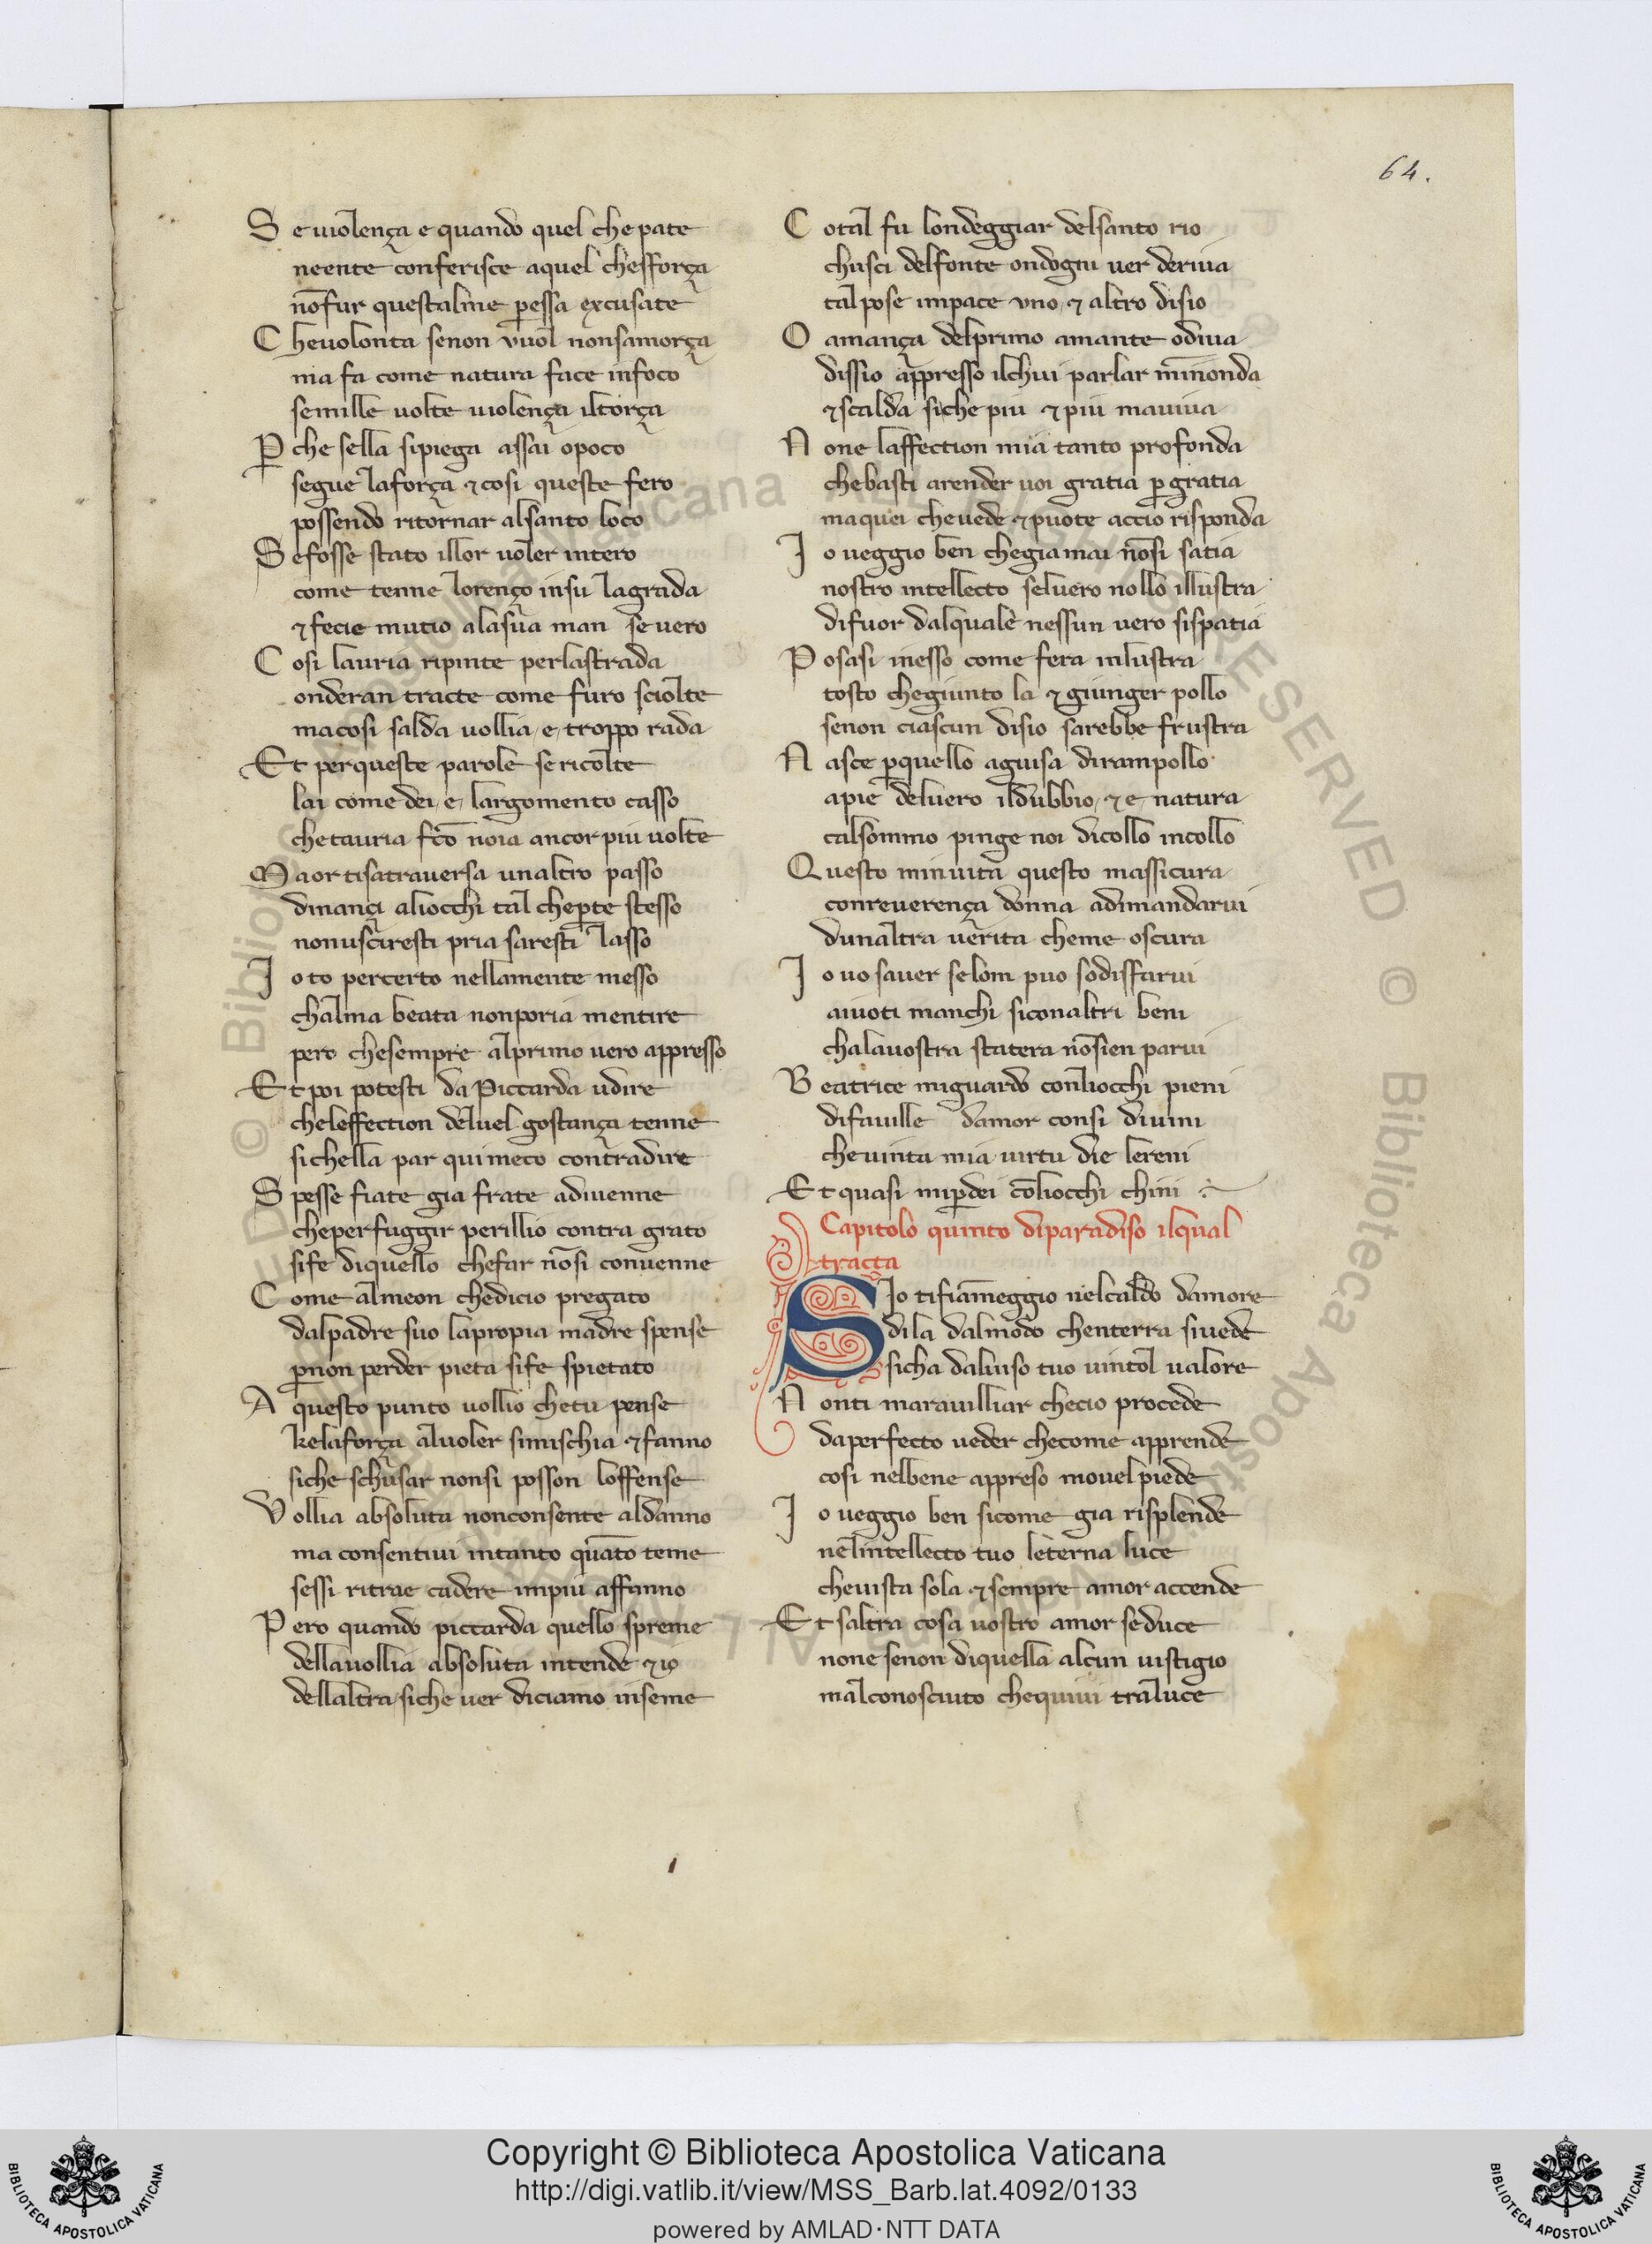 64.
S e uiolença e quando quel che pate
neente conferisce aquel chessforça
nōfur questalme p̱essa excusate
C heuolonta senon vuol nonsamorça
ma fa come natura face infoco
semille uolte uiolença iltorça
P̱ che sella sipiega assai opoco
segue laforça ⁊ cosi queste fero
possendo ritornar alsanto loco
S efosse stato illor uoler intero
come tenne lorenço insu lagrada
⁊ fecie mutio alasua man seuero
C osi lauria ripinte perlastrada
onderan tracte come furo sciolte
macosi salda uollia e troppo rada
Et perqueste parole se ricolte
lai come dei e largomento casso
chetauria fc̄o noia ancor piu uolte
M aor tisatrauersa unaltro passo
dinançi aliocchi tal chep̱te stesso
nonusciresti pria saresti lasso
I o to percerto nellamente messo
chalma beata nonporia mentire
pero chesempre alprimo uero appresso
Et poi potesti da Piccarda udire
cheleffection deluel gostança tenne
sichella par qui meco contradire
S pesse fiate gia frate adiuenne
cheperfuggir perillio contra grato
sife diquello chefar nōsi conuenne
C ome almeon chedicio pregato
dalpadre suo lapropia madre spense
p̱non perder pieta sife spietato
A questo punto uollio chetu pense
kelaforça aluoler simischia ⁊ fanno
siche schusar nonsi posson loffense
V ollia absoluta nonconsente aldanno
ma consentiui intanto quāto teme
sessi ritrae cadere impiu affanno
P ero quando piccarda quello spreme
dellauollia absoluta intende ⁊ io
dellaltra siche uer diciamo inseme
C otal fu londeggiar delsanto rio
chusci delfonte ondogni uer deriua
tal pose impace vno ⁊ altro disio
O amança delprimo amante odiua
dissio appresso ilchui parlar m̄inonda
⁊ scalda siche piu ⁊ piu mauiua
N one laffection mia tanto profonda
chebasti arender uoi gratia p̱ gratia
maquei cheuede ⁊ puote accio risponda
I o ueggio ben chegiamai nōsi satia
nostro intellecto seluero nollo illustra
difuor dalquale nessun uero sispatia
P osasi inesso come fera inlustra
tosto chegiunto la ⁊ giunger pollo
senon ciascun disio sarebbe frustra
N asce p̱quello aguisa dirampollo
apie deluero ildubbio ⁊ e natura
calsommo pinge noi dicollo incollo
Questo minuita questo massicura
conreuerença donna adimandarui
dunaltra uerita cheme oscura
I o uo sauer selom puo sodisfarui
aiuoti manchi siconaltri beni
chalauostra statera nōsien parui
B eatrice miguardo conliocchi pieni
difauille damor consi diuini
cheuinta mia uirtu die lereni
Et quasi mip̱dei cōliocchi chini
Capitolo quinto diparadiso ilqual
tracta
S Io tifiāmeggio nelcaldo damore
dila dalmodo chenterra siuede
sicha daluiso tuo uintol ualore
N onti marauilliar checio procede
daperfecto ueder checome apprende
cosi nelbene appreso mouel piede
I o ueggio ben sicome gia risplende
nelintellecto tuo leterna luce
cheuista sola ⁊ sempre amor accende
Et saltra cosa uostro amor seduce
none senon diquella alcun uistigio
malconosciuto chequiui traluce
Copyright © Biblioteca Apostolica Vaticana
http://digi.vatlib.it/view/MSS_Barb.lat.4092/0133
powered by AMLAD·NTT DATA
BIBLIOTECA APOSTOLICA VATICANA
BIBLIOTECA APOSTOLICA VATICANA